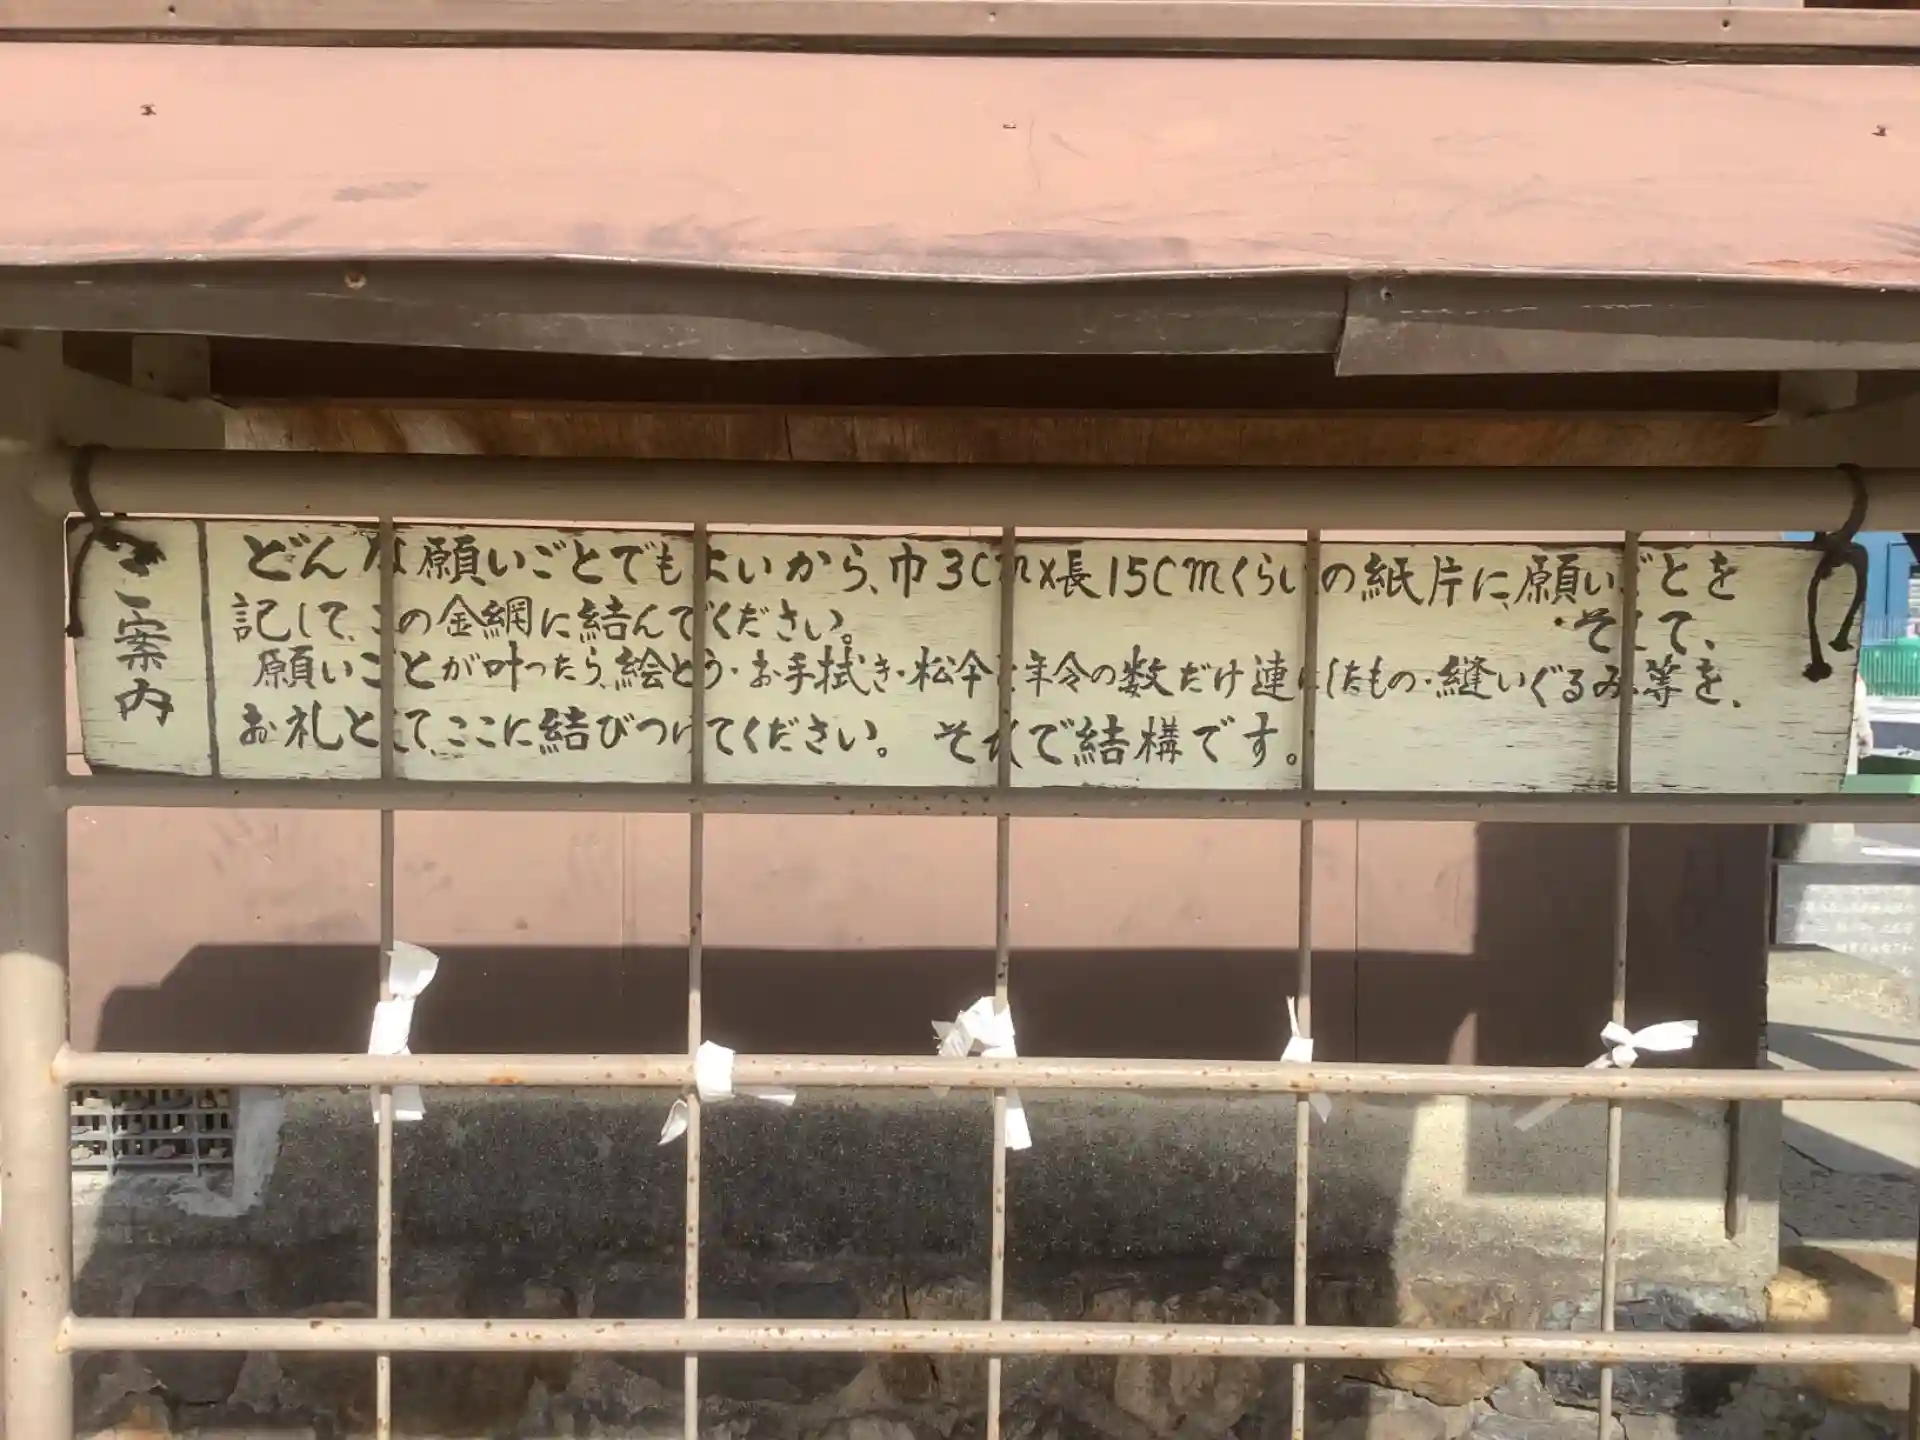 ご案内
どんな願いごとでもよいから、巾3Cm×長15Cmくらいの紙片に、願いごとを
記して、この金網に結んでください。
・そして、
願いごとが叶ったら、絵とう・お手拭き・松傘を年令の数だけ連にしたもの・縫いぐるみ等を、
お礼として、ここに結びつけてください。 それで結構です。